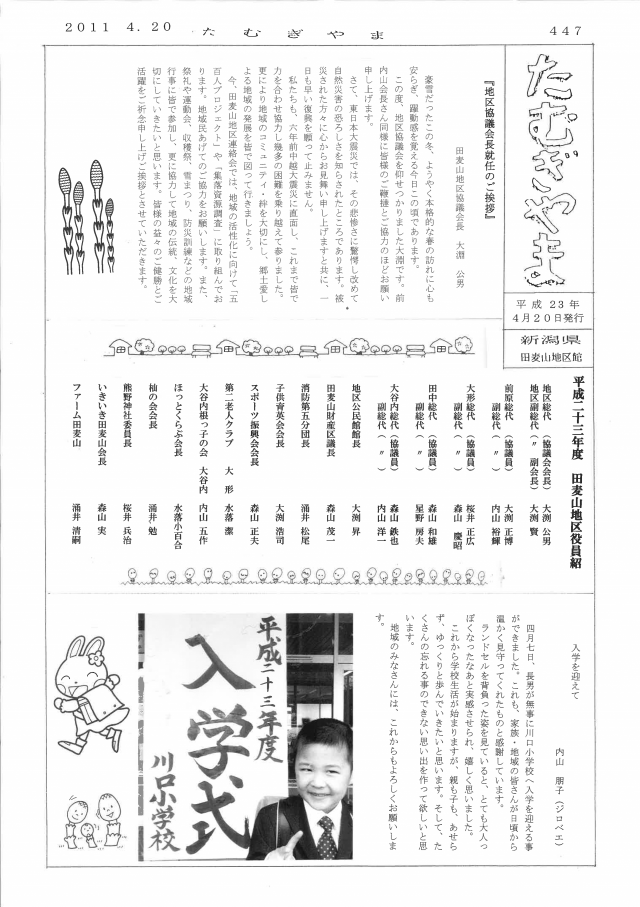 2011 4.20
たむぎやま
447
たむぎやま
平成 23年
4月20日発行
新潟県
田麦山地区館
『地区協議会長就任のご挨拶』
田麦山地区協議会長 大渕 公男
豪雪だったこの冬、ようやく本格的な春の訪れに心も
安らぎ、躍動感を覚える今日この頃であります。
この度、地区協議会長を仰せつかりました大渕です。前
内山会長さん同様に皆様のご鞭撻とご協力のほどお願い
申し上げます。
さて、東日本大震災では、その悲惨さに驚愕し改めて
自然災害の恐ろしさを知らされたところであります。被
災された方々に心からお見舞い申し上げますと共に、一
日も早い復興を願って止みません。
私たちも、六年前中越大震災に直面し、これまで皆で
力を合わせ協力し幾多の困難を乗り越えて参りました。
更により地域のコミュニティ・絆を大切にし、郷土愛し
よる地域の発展を皆で図って行きましょう。
今、田麦山地区連絡会では、地域の活性化に向けて「五
百人プロジェクト」や「集落資源調査」に取り組んでお
ります。地域民あげてのご協力をお願いします。また、
祭礼や運動会、収穫祭、雪まつり、防災訓練などの地域
行事に皆で参加し、更に協力して地域の伝統、文化を大
切にしていきたいと思います。皆様の益々のご健勝とご
活躍をご祈念申し上げご挨拶とさせていただきます。
平成二十三年度 田麦山地区役員紹
地区総代(協議会長) 大渕 公男
地区副総代(〃 副会長) 大渕 賢
前原総代(協議員) 大渕 正博
副総代(〃) 内山 裕輝
大形総代(協議員) 桜井 正広
副総代(〃) 森山 慶昭
田中総代(協議員) 森山 和雄
副総代(〃) 星野 房夫
大谷内総代(協議員) 森山 鉄也
副総代(〃) 内山 洋一
地区公民館館長 大渕 昇
田麦山財産区議長 森山 茂一
消防第五分団長 涌井 松尾
子供育英会会長 大渕 浩司
スポーツ振興会会長 森山 正夫
第二老人クラブ 大形 水落 潔
大谷内根っ子の会 大谷内 内山 五作
ほっとくらぶ会長 水落小百合
柚の会会長 涌井 勉
熊野神社委員長 桜井 兵治
いきいき田麦山会長 森山 実
ファーム田麦山 涌井 清嗣
入学を迎えて
内山 朋子(ジロベエ)
四月七日、長男が無事に川口小学校へ入学を迎える事
ができました。これも、家族・地域の皆さんが日頃から
温かく見守ってくれたものと感謝しています。
ランドセルを背負った姿を見ていると、とても大人っ
ぽくなったなあと実感させられ、嬉しく思いました。
これから学校生活が始まりますが、親も子も、あせら
ず、ゆっくりと歩んでいきたいと思います。そして、た
くさんの忘れる事のできない思い出を作って欲しいと思
います。
地域のみなさんには、これからもよろしくお願いしま
す。
平成二十三年度
入学式
川口小学校